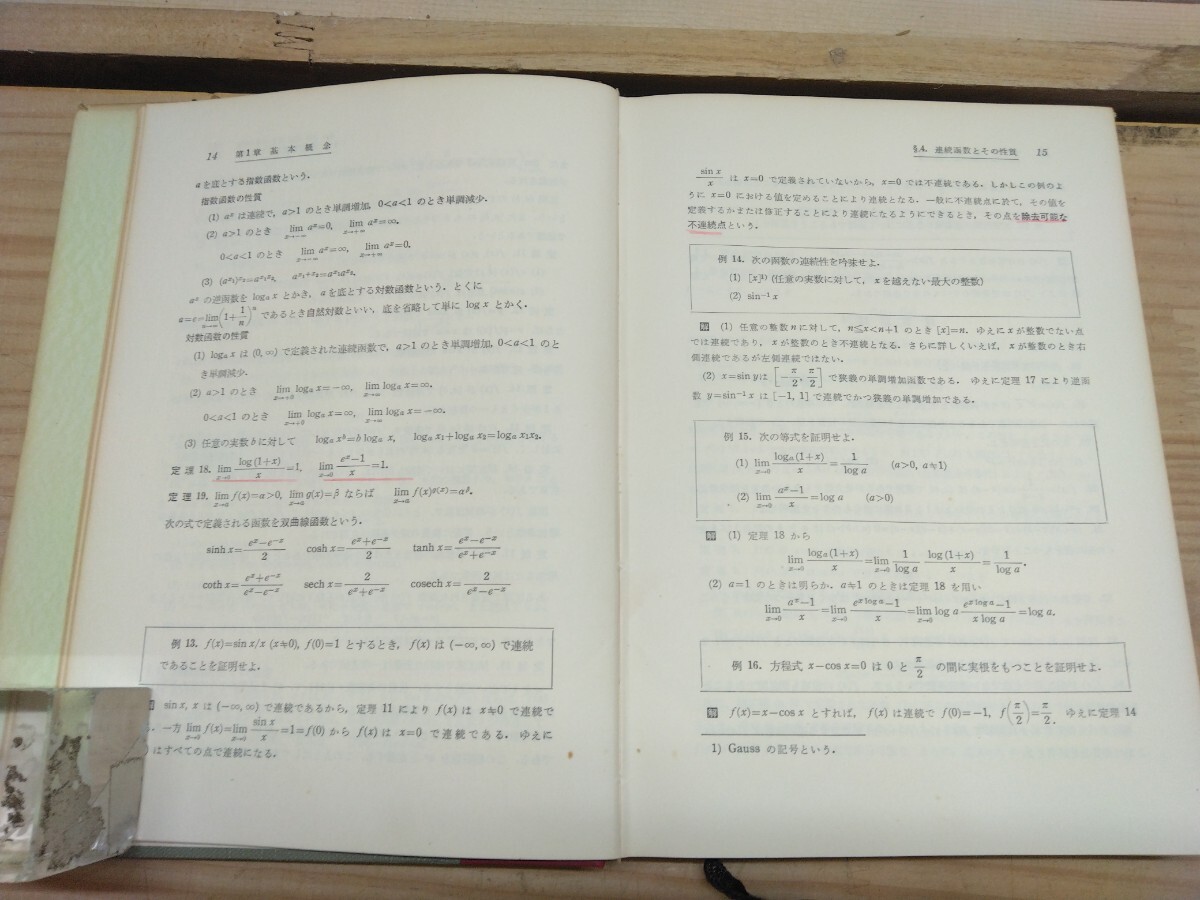 14 第1章 基本概念
aを底とする指数函数という.
指数函数の性質
(1) aˣ は連続で, a>1 のとき単調増加, 0<a<1 のとき単調減少.
(2) a>1 のとき lim_{x→-∞} aˣ=0, lim_{x→+∞} aˣ=∞.
0<a<1 のとき lim_{x→-∞} aˣ=∞, lim_{x→+∞} aˣ=0.
(3) (a^{x₁})^{x₂}=a^{x₁x₂}, a^{x₁+x₂}=a^{x₁}a^{x₂}.
aˣ の逆函数を logₐ x とかき, a を底とする対数函数という. とくに
a=e=lim_{n→∞}(1+1/n)ⁿ であるとき自然対数といい, 底を省略して単に log x とかく.
対数函数の性質
(1) logₐ x は (0, ∞) で定義された連続函数で, a>1 のとき単調増加, 0<a<1 のと
き単調減少.
(2) a>1 のとき lim_{x→+0} logₐ x=-∞, lim_{x→∞} logₐ x=∞.
0<a<1 のとき lim_{x→+0} logₐ x=∞, lim_{x→∞} logₐ x=-∞.
(3) 任意の実数 b に対して logₐ xᵇ=b logₐ x, logₐ x₁+logₐ x₂=logₐ x₁x₂.
定理 18. lim_{x→0} log(1+x)/x=1, lim_{x→0} (eˣ-1)/x=1.
定理 19. lim_{x→a} f(x)=α>0, lim_{x→a} g(x)=β ならば lim_{x→a} f(x)^{g(x)}=α^β.
次の式で定義される函数を双曲線函数という.
sinh x=(eˣ-e⁻ˣ)/2 cosh x=(eˣ+e⁻ˣ)/2 tanh x=(eˣ-e⁻ˣ)/(eˣ+e⁻ˣ)
coth x=(eˣ+e⁻ˣ)/(eˣ-e⁻ˣ) sech x=2/(eˣ+e⁻ˣ) cosech x=2/(eˣ-e⁻ˣ)
例 13. f(x)=sin x/x (x≠0), f(0)=1 とするとき, f(x) は (-∞, ∞) で連続
であることを証明せよ.
sin x, x は (-∞, ∞) で連続であるから, 定理 11 により f(x) は x≠0 で連続で
. 一方 lim_{x→0} f(x)=lim_{x→0} sin x/x=1=f(0) から f(x) は x=0 で連続である. ゆえに
) はすべての点で連続になる.
§.4. 連続函数とその性質 15
sin x/x は x=0 で定義されていないから, x=0 では不連続である. しかしこの例のよ
うに x=0 における値を定めることにより連続となる. 一般に不連続点に於て, その値を
定義するかまたは修正することにより連続になるようにできるとき, その点を除去可能な
不連続点という.
例 14. 次の函数の連続性を吟味せよ.
(1) [x]¹⁾ (任意の実数に対して, x を越えない最大の整数)
(2) sin⁻¹ x
解 (1) 任意の整数 n に対して, n≦x<n+1 のとき [x]=n. ゆえに x が整数でない点
では連続であり, x が整数のとき不連続となる. さらに詳しくいえば, x が整数のとき右
側連続であるが左側連続ではない.
(2) x=sin y は [-π/2, π/2] で狭義の単調増加函数である. ゆえに定理 17 により逆函
数 y=sin⁻¹ x は [-1, 1] で連続でかつ狭義の単調増加である.
例 15. 次の等式を証明せよ.
(1) lim_{x→0} logₐ(1+x)/x=1/log a (a>0, a≠1)
(2) lim_{x→0} (aˣ-1)/x=log a (a>0)
解 (1) 定理 18 から
lim_{x→0} logₐ(1+x)/x=lim_{x→0} 1/log a log(1+x)/x=1/log a.
(2) a=1 のときは明らか. a≠1 のときは定理 18 を用い
lim_{x→0} (aˣ-1)/x=lim_{x→0} (e^{x log a}-1)/x=lim_{x→0} log a (e^{x log a}-1)/(x log a)=log a.
例 16. 方程式 x-cos x=0 は 0 と π/2 の間に実根をもつことを証明せよ.
解 f(x)=x-cos x とすれば, f(x) は連続で f(0)=-1, f(π/2)=π/2. ゆえに定理 14
1) Gauss の記号という.